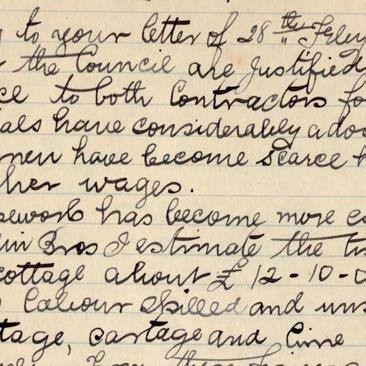 to your letter of 28th Feby
the Council are justified
to both Contractors fo
als have considerably adva
men have become scarce
her wages.
ework has become more e
lin Bros I estimate the
cottage about £12-10-0
Labour skilled and uns
tage, cartage and lime